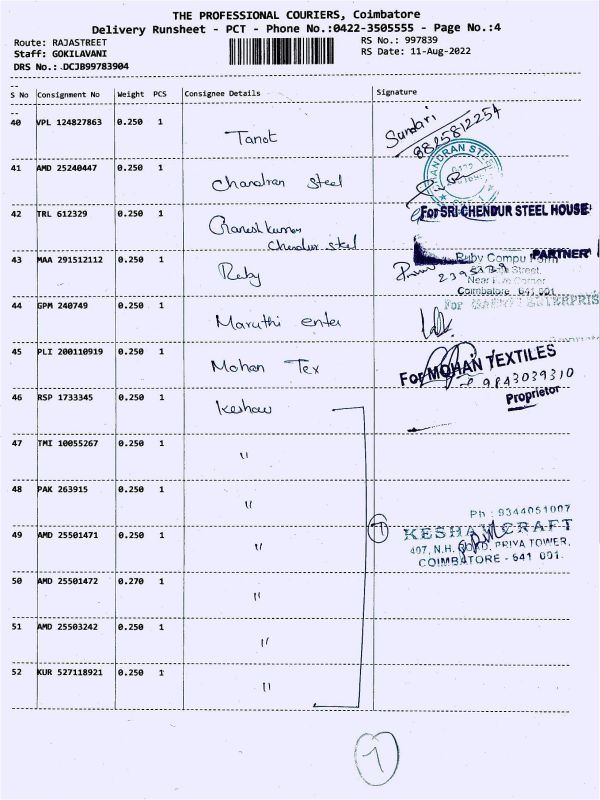 THE PROFESSIONAL COURIERS, Coimbatore
Delivery Runsheet - PCT - Phone No.:0422-3505555 - Page No.:4
Route: RAJASTREET RS No.: 997839
Staff: GOKILAVANI RS Date: 11-Aug-2022
DRS No.: DCJB99783904
S No Consignment No Weight PCS Consignee Details Signature
40 VPL 124827863 0.250 1 Tanot Sundari
8825812254
41 AMD 25240447 0.250 1 Chandran Steel
42 TRL 612329 0.250 1 Ganesh kumar For SRI CHENDUR STEEL HOUSE
Chendur steel
PARTNER
43 MAA 291512112 0.250 1 Ruby Ruby Compu Form
Raja Street,
Near Five Corner
Coimbatore 641 001
44 GPM 240749 0.250 1 Maruthi enter For MARUTHI ENTERPRIS
45 PLI 200110919 0.250 1 Mohan Tex For MOHAN TEXTILES
9843039310
Proprietor
46 RSP 1733345 0.250 1 Keshaw
47 TMI 10055267 0.250 1 "
48 PAK 263915 0.250 1 "
Ph : 9344051007
49 AMD 25501471 0.250 1 " 7 KESHAV CRAFT
407, N.H. ROAD, PRIYA TOWER,
COIMBATORE - 641 001.
50 AMD 25501472 0.270 1 "
51 AMD 25503242 0.250 1 "
52 KUR 527118921 0.250 1 "
7